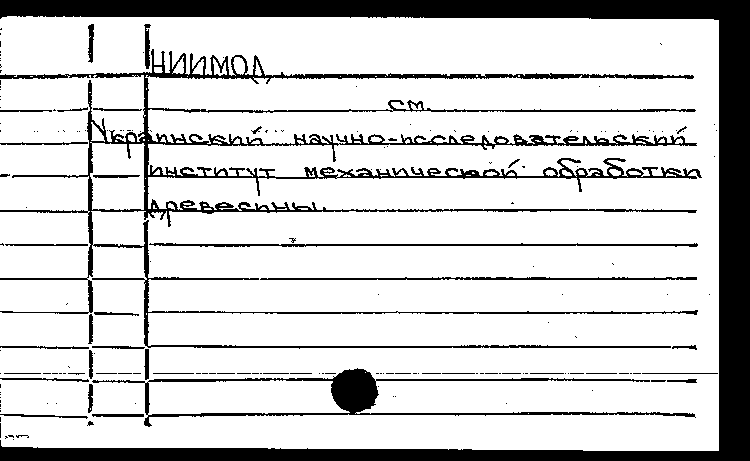 НИИМОД.
см.
Украинский научно-исследовательский
институт механической обработки
древесины.